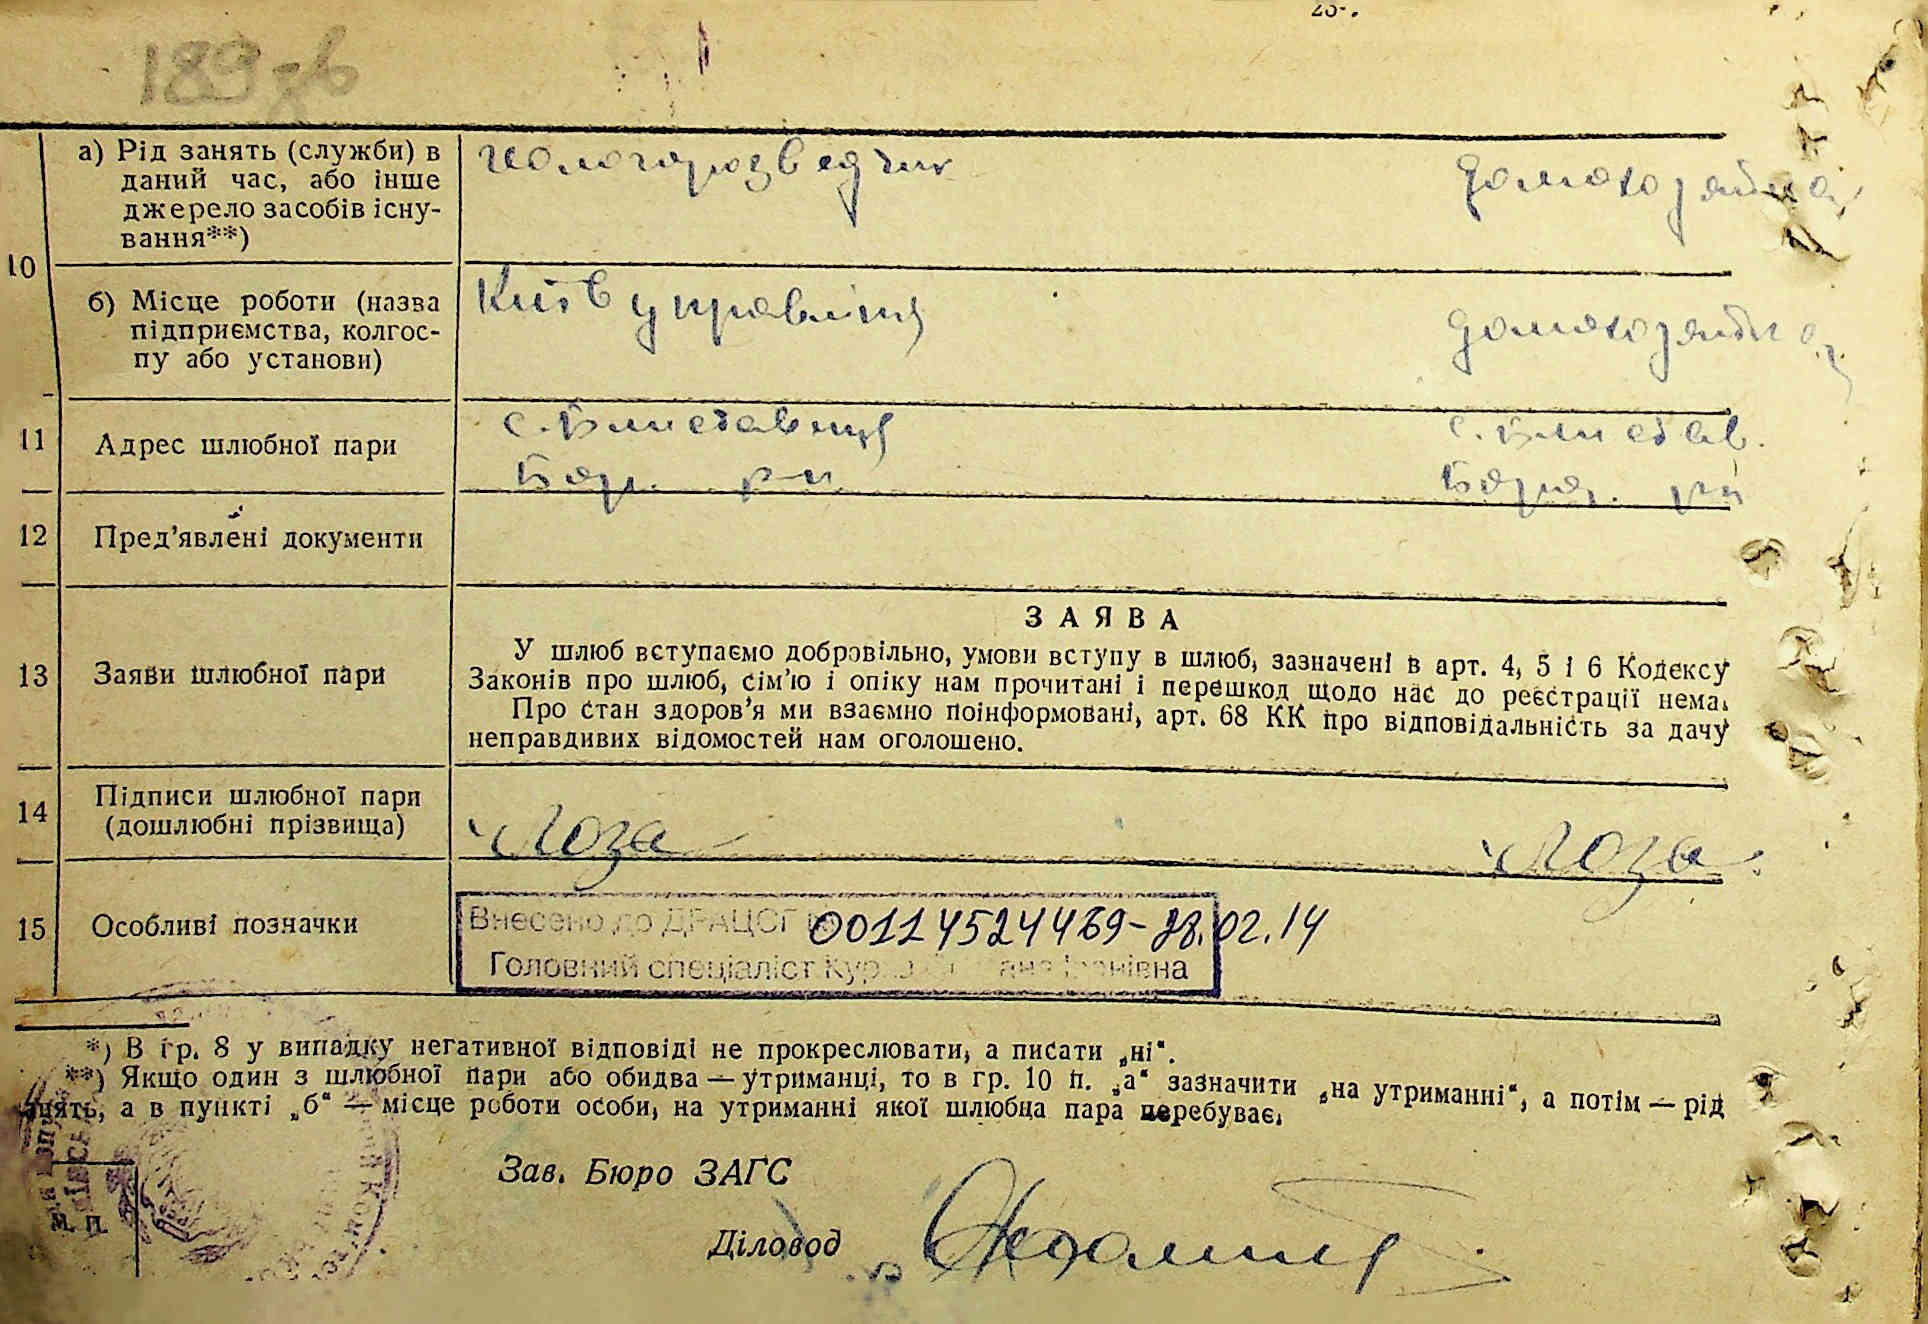 189 зв
а) Рід занять (служби) в
даний час, або інше
джерело засобів існу-
вання**)
геологорозведчик
домохозяйка
10
б) Місце роботи (назва
підприємства, колгос-
пу або установи)
Київ управління
домохозяйка
11
Адрес шлюбної пари
с. Блиставиця
Бор. р-н
с. Блистав.
Бород. р-н
12
Пред'явлені документи
13
Заяви шлюбної пари
ЗАЯВА
У шлюб вступаємо добровільно, умови вступу в шлюб, зазначені в арт. 4, 5 і 6 Кодексу
Законів про шлюб, сім'ю і опіку нам прочитані і перешкод щодо нас до реєстрації нема.
Про стан здоров'я ми взаємно поінформовані, арт. 68 КК про відповідальність за дачу
неправдивих відомостей нам оголошено.
14
Підписи шлюбної пари
(дошлюбні прізвища)
Лоза
Лоза
15
Особливі позначки
Внесено до ДРАЦСГ 00114524469-28.02.14
Головний спеціаліст
*) В гр. 8 у випадку негативної відповіді не прокреслювати, а писати „ні".
**) Якщо один з шлюбної пари або обидва — утриманці, то в гр. 10 п. „а" зазначити „на утриманні", а потім — рід
занять, а в пункті „б" — місце роботи особи, на утриманні якої шлюбна пара перебуває.
Зав. Бюро ЗАГС
М. П.
Діловод